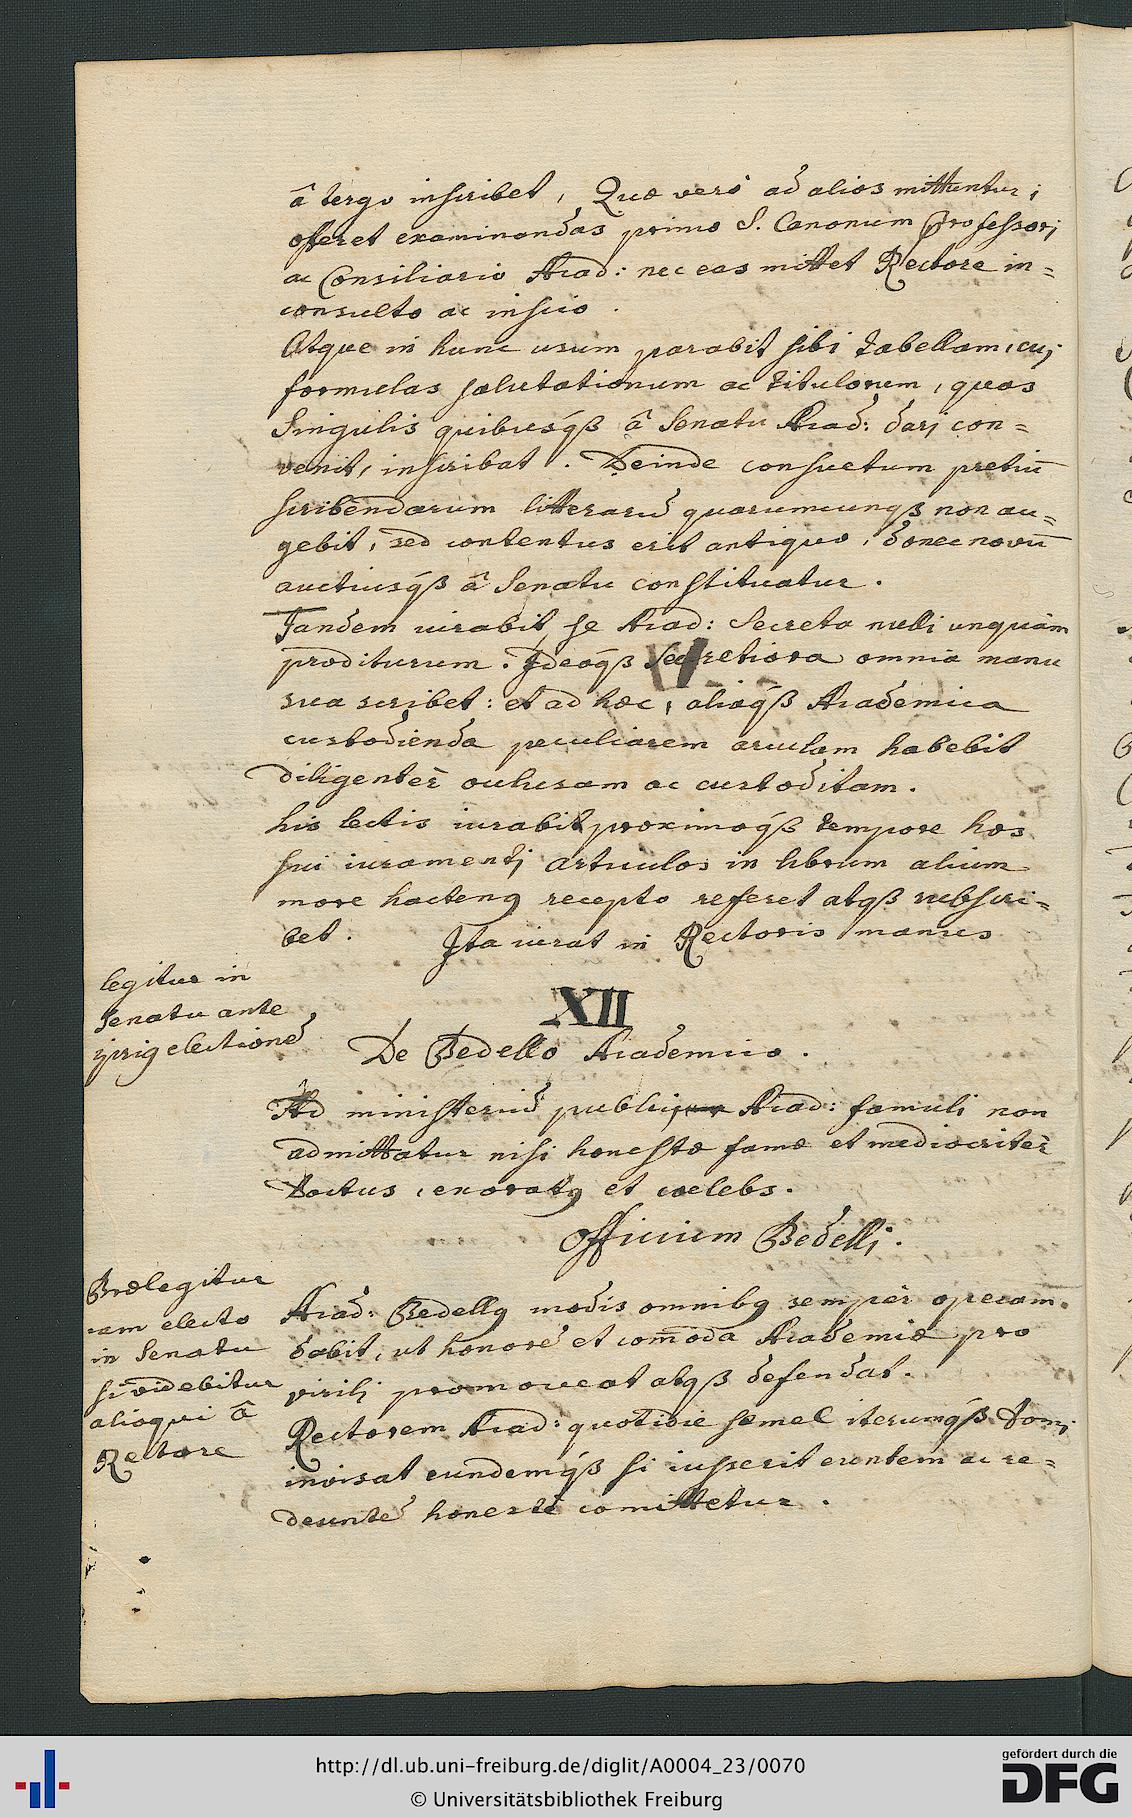 â tergo inscribet, Quæ verò ad alios mittuntur;
offeret examinandas primo S. Canonum Professorj
ac Consiliario Acad: nec eas mittet Rectore in=
consulto ac inscio.
Atque in hunc usum parabit sibi tabellam, cuj
formulas salutationum ac titulorum, quas
Singulis quibusq́ß â Senatu Acad: darj con=
venit, inscribat. Deinde consuetum pretiū
scribendarum litterarū quarumcunqß non au=
gebit, sed contentus erit antiquo, donec novū
auctiusq́ß â Senatu constituatur.
Tandem iurabit se Acad: Secreta nulli unquàm
proditurum. Ideoq́ß secretiora omnia manu
sua scribet: et ad hæc, aliaq́ß Academica
custodienda peculiarem arculam habebit
diligentèr occlusam ac custoditam.
his lectis iurabit proximoq́ß tempore hos
sui iuramentj articulos in librum alium
more hactenq recepto referet atqß subscri=
bet. Ita iurat in Rectoris manus
legitur in
Senatu ante
ipsiq electionē
XII
De Bedello Academico.
Ad ministeriū publicum Acad: famuli non
admittatur nisi honestæ famæ et mediocritèr
doctus, exoratq et cœlebs.
Officium Bedellj.
Prælegitur
iam electo
in Senatu
si videbitur
alioqui â
Rectore
Acad: Bedellq modis omnibq sempèr operam
dabit, ut honorē et com̄oda Academiæ pro
virilj promoveat atqß defendat.
Rectorem Acad: quotidie semel iterumq́ß domj
invisat eundemq́ß si iusserit euntem ac re=
deuntē honestè comittetur.
http://dl.ub.uni-freiburg.de/diglit/A0004_23/0070
© Universitätsbibliothek Freiburg
gefördert durch die
DFG